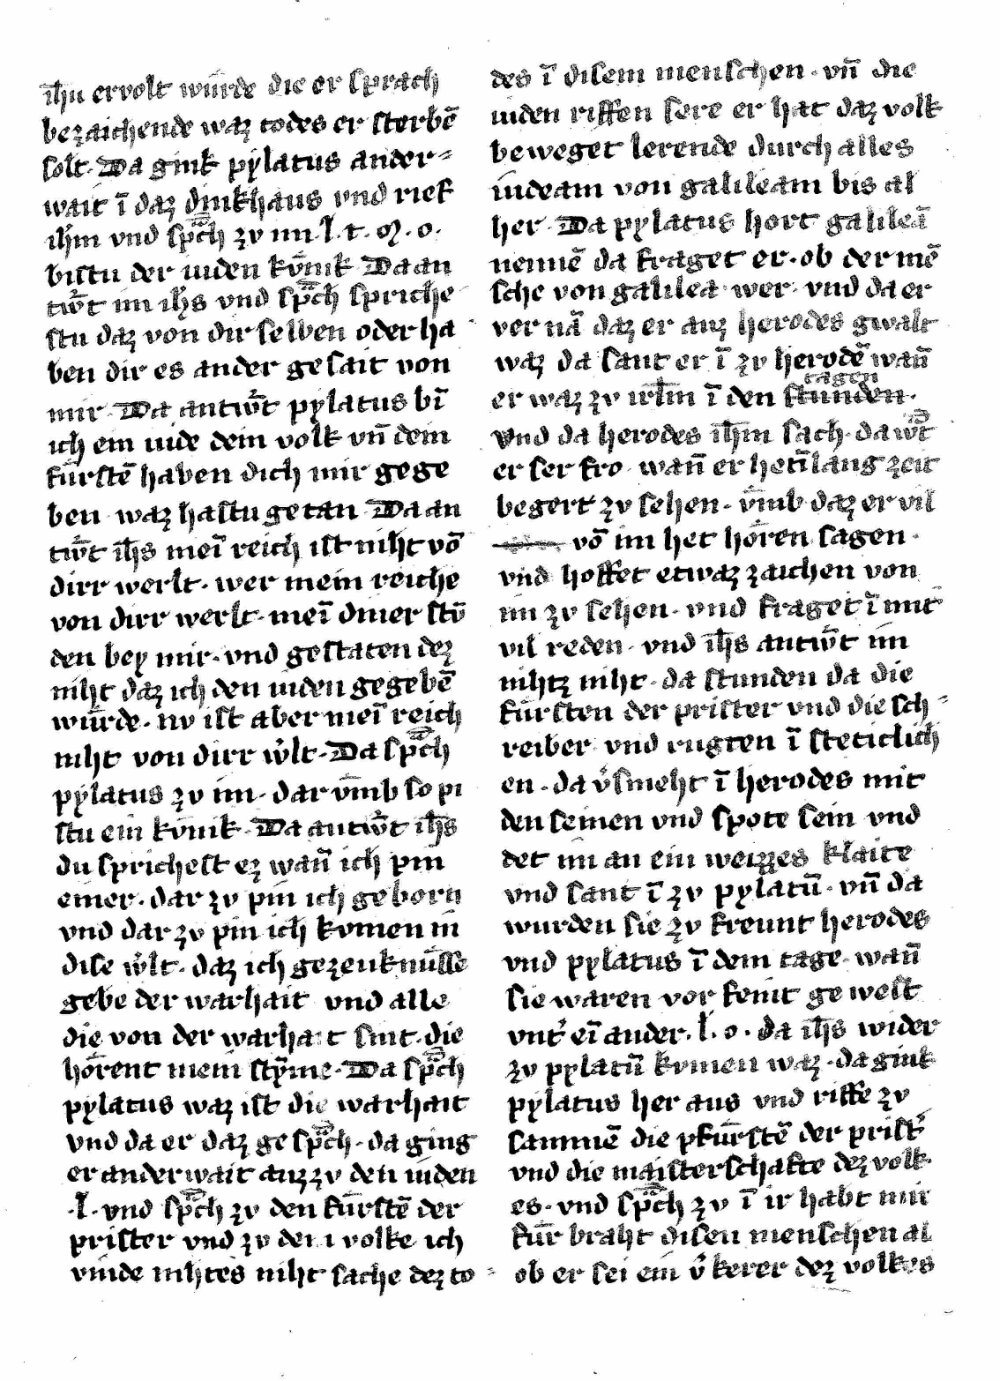 ih̄u ervolt wuͤrde die er sprach
bezaichende waz todes er sterbē
solt. Da gink pẏlatus ander⸗
wait ī daz dinkhaus vnd rief
ih̄m vnd sprͣch zv im . l . t . M . o .
bistu der iuden kvͤnik Da an
tw̄rt im ih̄s vnd sprͣch spriche
stu daz von dir selben oder ha
ben dir es ander gesait von
mir . Da antw̄rt pẏlatus bī
ich ein iude dein volk vn̄ dein
fuͤrstē haben dich mir gege
ben waz hastu getan Da an
tw̄rt ih̄s meī reich ist niht vō
dirr werlt . wer mein reiche
von dirr werlt . meī diner stuͤ
den bey mir . vnd gestaten dez
niht daz ich den iuden gegebē
wuͤrde . nv ist aber meī reich
niht von dirr w̉lt . Da sprͣch
pẏlatus zv im . dar vm̄b so pi
stu ein kvͤnik . Da antw̄rt ih̄s
du sprichest ez wan̄ ich pin
einer . dar zv pin ich geborn
vnd dar zv pin ich kvmen in
dise w̉lt . daz ich gezeuknuͤsse
gebe der warhait vnd alle
die von der warhait sint . die
hoͤrent mein stẏme . Da sprͣch
pẏlatus waz ist die warhait
vnd da er daz gesprͣch . da ging
er anderwait auz zv den iuden
. l . vnd sprͣch zv den fuͤrstē der
prister vnd zv dem volke ich
vinde nihtes niht sache dez to⸗
des ī disem menschen . vn̄ die
iuden riffen sere er hat daz volk
beweget lerende durch alles
iudeam von galileam bis al
her . Da pẏlatus hort galileā
nennē da fraget er . ob der mē
sche von galilea wer . vnd da er
ver nā daz er auz herodes gwalt
waz da sant er ī zv herodē wan̄
er waz zv irl̄m ī den stunden . tagen
vnd da herodes ih̄m sach . da wͣrt
er ser fro . wan̄ er het in lang zeit
begert zv sehen . vm̄b daz er vil
vō im het hoͤren sagen .
vnd hoffet etwaz zaichen von
im zv sehen . vnd fraget ī mit
vil reden . vnd ih̄s antw̄rt im
nihtz niht . da stunden da die
fuͤrsten der prister vnd die sch⸗
reiber vnd rugten ī steticlich
en . da v̉smeht ī herodes mit
den seinen vnd spote sein vnd
det im an ein weizzes klaite
vnd sant ī zv pẏlatū . vn̄ da
wurden sie zv freunt herodes
vnd pẏlatus ī dem tage . wan̄
sie waren vor feint gewest
vnt̉ eī ander . l . o . da ih̄s wider
zv pẏlatū kvmen waz . da gink
pẏlatus her aus vnd riffe zv
sammē die pfuͤrstē der prist̉
vnd die maisterschafte dez volk
es . vnd sprͣch zv ī ir habt mir
fuͤr braht disen menschen al
ob er sei ein v̉kerer dez volkes